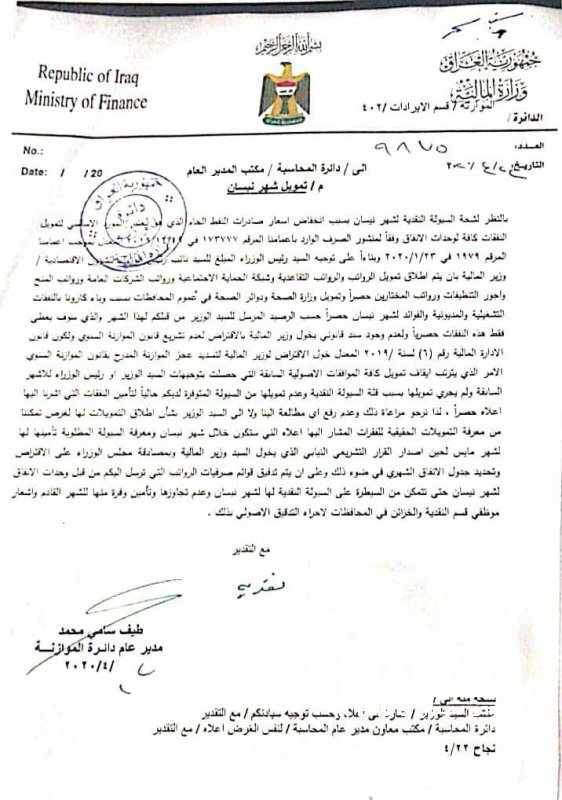 بسم الله الرحمن الرحيم
جمهورية العراق
وزارة المالية
Republic of Iraq
Ministry of Finance
الدائرة / الموازنة / قسم الايرادات / ٤٠٢
No.:
العدد:
Date: / / 20
التاريخ:
الى / دائرة المحاسبة / مكتب المدير العام
م / تمويل شهر نيسان
بالنظر لشحة السيولة النقدية لشهر نيسان بسبب انخفاض اسعار صادرات النفط الخام الذي هو المورد الاساسي لتمويل
النفقات كافة لوحدات الانفاق وفقاً لمنشور الصرف الوارد باعمامنا المرقم ١٧٣٧٧٧ في بموجب اعمامنا
المرقم ١٩٧٩ في ٢٠٢٠/١/٢٣ وبناءاً على توجيه السيد رئيس الوزراء المبلغ للسيد نائب رئيس للشؤون الاقتصادية /
وزير المالية بان يتم اطلاق تمويل الرواتب والرواتب التقاعدية وشبكة الحماية الاجتماعية ورواتب الشركات العامة ورواتب المنح
واجور التنظيفات ورواتب المختارين حصراً وتمويل وزارة الصحة ودوائر الصحة في عموم المحافظات بسبب وباء كارونا بالنفقات
التشغيلية والمديونية والفوائد لشهر نيسان حصراً حسب الرصيد المرسل للسيد الوزير من قبلكم لهذا الشهر والذي سوف يغطي
فقط هذه النفقات حصرياً ولعدم وجود سند قانوني يخول وزير المالية بالاقتراض لعدم تشريع قانون الموازنة السنوي ولكون قانون
الادارة المالية رقم (٦) لسنة /٢٠١٩ المعدل خول الاقتراض لوزير المالية لتسديد عجز الموازنة المدرج بقانون الموازنة السنوي
الامر الذي يترتب ايقاف تمويل كافة الموافقات الاصولية السابقة التي حصلت بتوجيهات السيد الوزير او رئيس الوزراء للاشهر
السابقة ولم يجري تمويلها بسبب قلة السيولة النقدية وعدم تمويلها من السيولة المتوفرة لديكم حالياً لتأمين النفقات التي اشرنا اليها
اعلاه حصراً ، لذا نرجو مراعاة ذلك وعدم رفع اي مطالعة الينا ولا الى السيد الوزير بشأن اطلاق التمويلات لها لغرض تمكننا
من معرفة التمويلات الحقيقية للفقرات المشار اليها اعلاه التي ستكون خلال شهر نيسان ومعرفة السيولة المطلوبة تأمينها لها
لشهر مايس لحين اصدار القرار التشريعي النيابي الذي يخول السيد وزير المالية وبمصادقة مجلس الوزراء على الاقتراض
وتحديد جدول الانفاق الشهري في ضوء ذلك وعلى ان يتم تدقيق قوائم صرفيات الرواتب التي ترسل اليكم من قبل وحدات الانفاق
لشهر نيسان حتى نتمكن من السيطرة على السيولة النقدية لها لشهر نيسان وعدم تجاوزها وتأمين وفرة منها للشهر القادم واشعار
موظفي قسم النقدية والخزائن في المحافظات لاجراء التدقيق الاصولي بذلك .
مع التقدير
طيف سامي محمد
مدير عام دائرة الموازنة
٢٠٢٠/٤/
نسخة منه الى /
مكتب السيد الوزير / اعلاه وحسب توجيه سيادتكم / مع التقدير
دائرة المحاسبة / مكتب معاون مدير عام المحاسبة / لنفس الغرض اعلاه / مع التقدير
نجاح ٤/٢٢